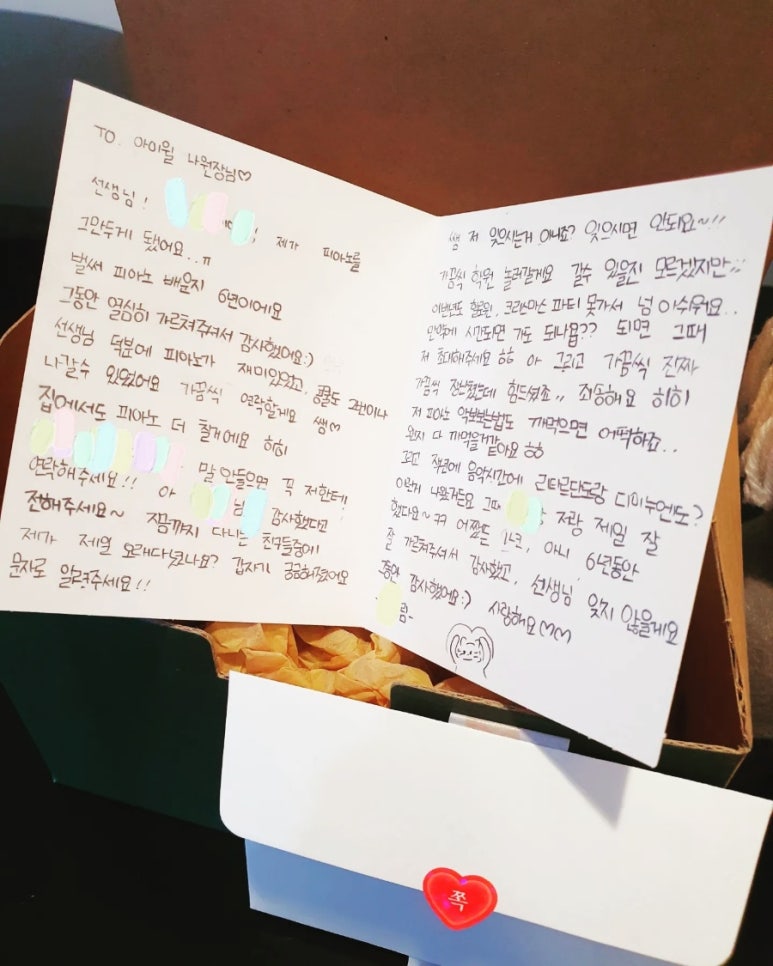 TO. 아이윌 나원장님♡
선생님! 제가 피아노를
그만두게 됐어요..ㅠ
벌써 피아노 배운지 6년이에요
그동안 열심히 가르쳐주셔서 감사했어요:)
선생님 덕분에 피아노가 재미있었고, 콩쿨도 2번이나
나갈수 있었어요 가끔씩 연락할게요 쌤♡
집에서도 피아노 더 칠거에요 히히
말 안들으면 꼭 저한테
연락해주세요!! 아 님 감사했다고
전해주세요~ 지금까지 다니는 친구들중에
제가 제일 오래다녔나요? 갑자기 궁금해졌어요
문자로 알려주세요!!
쌤 저 잊으시는거 아니죠? 잊으시면 안되요~!!
가끔씩 학원 놀러갈게요 갈수 있을진 모르겠지만;;
이번년도 할로윈, 크리스마스 파티 못가서 넘 아쉬워요..
만약에 시간되면 가도 되나욤?? 되면 그때
저 초대해주세요 ㅎㅎ 아 그리고 가끔씩 진짜
가끔씩 장난쳤는데 힘드셨죠,, 죄송해요 히히
저 피아노 악보보는법도 까먹으면 어떡하죠..
왠지 다 까먹을거같아요 ㅎㅎ
그리고 작년에 음악시간에 근타르단도랑 디미누엔도?
이렇게 나왔거든요 그때 랑 저랑 제일 잘
했다요~ㅋㅋ 어쨌든 1년, 아니 6년동안
잘 가르쳐주셔서 감사했고, 선생님 잊지 않을게요
감사했어요:) 사랑해요♡♡
림-
쪽